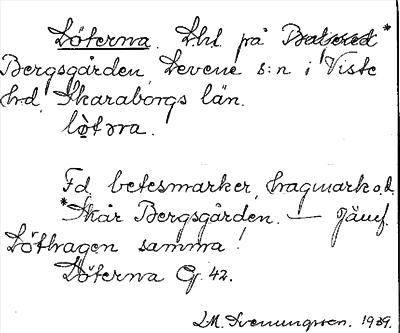 Löterna. Lhl. på *
Bergsgården, Levene s:n i Viste
hrd. Skaraborgs län.
lö̀təra.
Fd. betesmarker, hagmark o.d.
*Skår Bergsgården. — Jämf.
Löthagen samma!
Löterna G. 42.
L.M. Svenungsson. 1939.